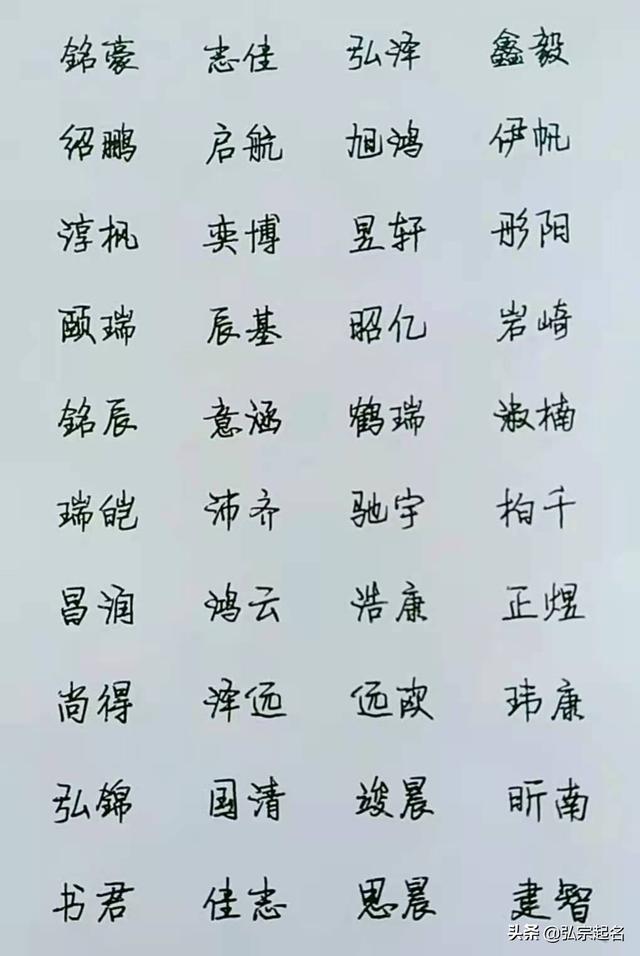 铭豪 志佳 弘泽 鑫毅
绍鹏 启航 旭鸿 伊帆
淳枫 奕博 昱轩 彤阳
颐瑞 辰基 昭亿 岩崎
铭辰 意涵 鹤瑞 淑楠
瑞皑 沛齐 驰宇 柏千
昌润 鸿云 浩康 正煜
尚得 泽远 远欧 玮康
弘锦 国清 竣晨 昕南
书君 佳志 思晨 建智
头条 @弘宗起名